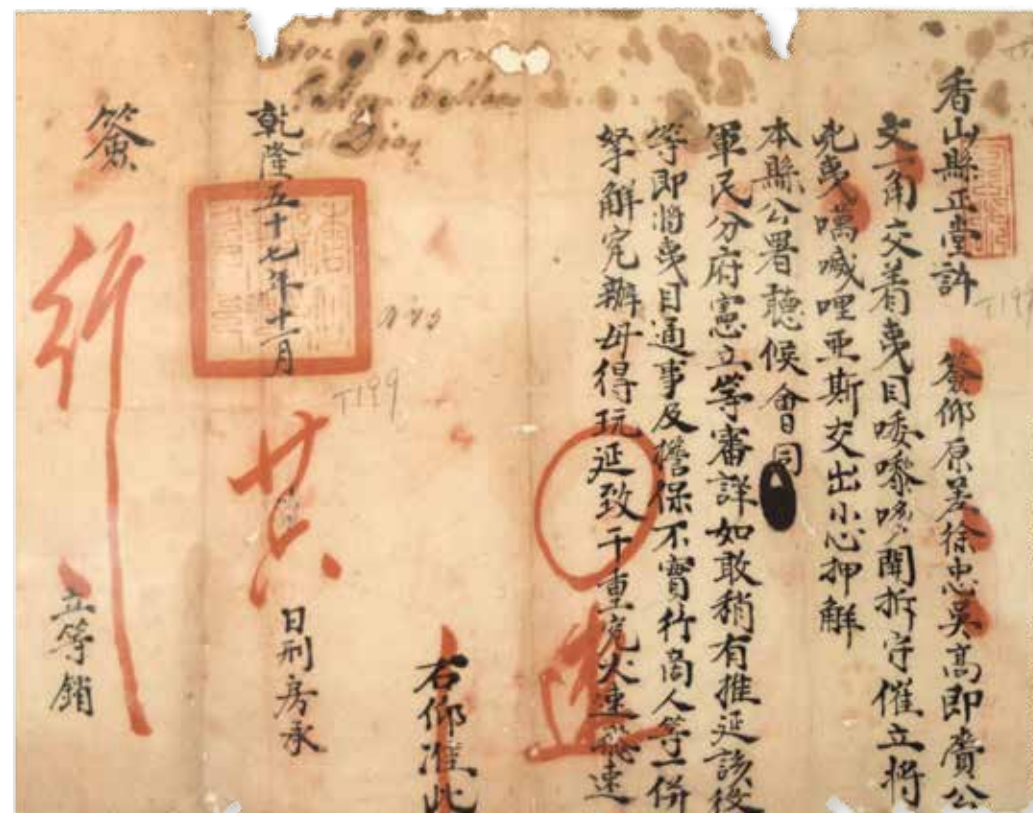 香山縣正堂許　簽仰原差徐忠吳高即賫公
文一角交着夷目唩嚟哆開拆守催立將
兇夷𠸄哑哩亚斯交出小心押解
本縣公署聽候會同
軍民分府憲立等審詳如敢稍有推延該役
等即將夷目通事及擔保不實行商人等一併
拏解究辦毋得玩延致干重究火速飛速
右仰准此
乾隆五十七年十一月
廿六
日刑房承
簽
行
立等銷
T199